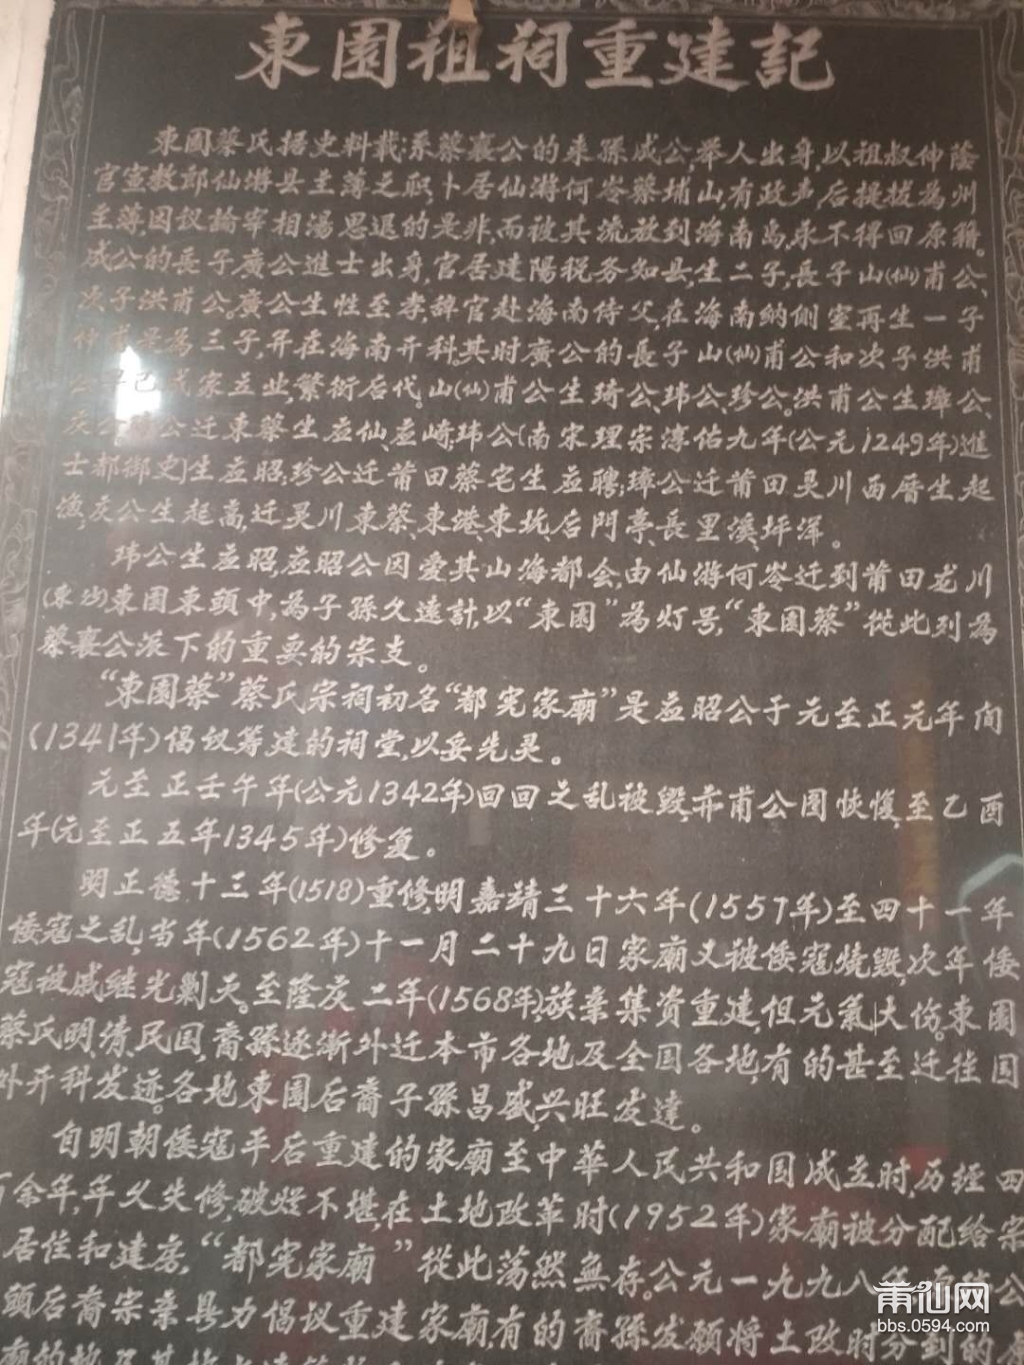 東園祖祠重建記
東園蔡氏据史料載:系蔡襄公的来孫成公,举人出身,以祖叔仲蔭
官宣教郎仙游县主薄之职,卜居仙游何岺蔡埔山,有政声,后提拔為州
主薄,因议論宰相湯思退的是非,而被其流放到海南島,永不得回原籍。
成公的長子廣公進士出身,官居建陽税务知县,生二子,長子山(仙)甫公、
次子洪甫公。廣公生性至孝,辞官赴海南侍父,在海南納側室再生一子
為三子,并在海南开科。其时廣公的長子山(仙)甫公和次子洪甫
已成家立业,繁衍后代。山(仙)甫公生琦公、玮公、珍公。洪甫公生璋公、
公迁東蔡生应仙、应崎;玮公[南宋理宗淳佑九年(公元1249年)進
士都御史]生应昭;珍公迁莆田蔡宅生应聘;璋公迁莆田吴川西厝生起
渔,灰公生起高,迁吴川東蔡、東港、東坑、后門亭、長里溪、坪洋。
玮公生应昭,应昭公因爱其山海都会,由仙游何岺迁到莆田龙川
(東沙)東園東頭中,為子孫久遠計,以“東園”為灯号,“東園蔡”從此列為
蔡襄公派下的重要的宗支。
“東園蔡”蔡氏宗祠初名“都宪家廟”是应昭公于元至正元年间
(1341年)倡议筹建的祠堂,以妥先灵。
元至正壬午年(公元1342年)回回之乱被毁,亦甫公图恢復,至乙酉
年(元至正五年1345年)修复。
明正德十三年(1518)重修,明嘉靖三十六年(1557年)至四十一年
倭寇之乱,当年(1562年)十一月二十九日家廟又被倭寇燒毁,次年倭
寇被戚继光剿灭。至隆庆二年(1568年),族亲集資重建,但元氣大伤。東園
蔡氏明、清、民国,裔孫逐渐外迁本市各地及全国各地,有的甚至迁往国
外开科发迹。各地東園后裔子孫昌盛,兴旺发達。
自明朝倭寇平后重建的家廟至中華人民共和国成立时,历经四
百余年,年久失修,破烂不堪,在土地改革时(1952年)家廟被分配给宗
居住和建房,“都宪家廟”從此荡然無存。公元一九九八年
頭后裔宗亲县力倡议重建家廟,有的裔孫发願將土改时分到的
莆仙网
bbs.0594.com